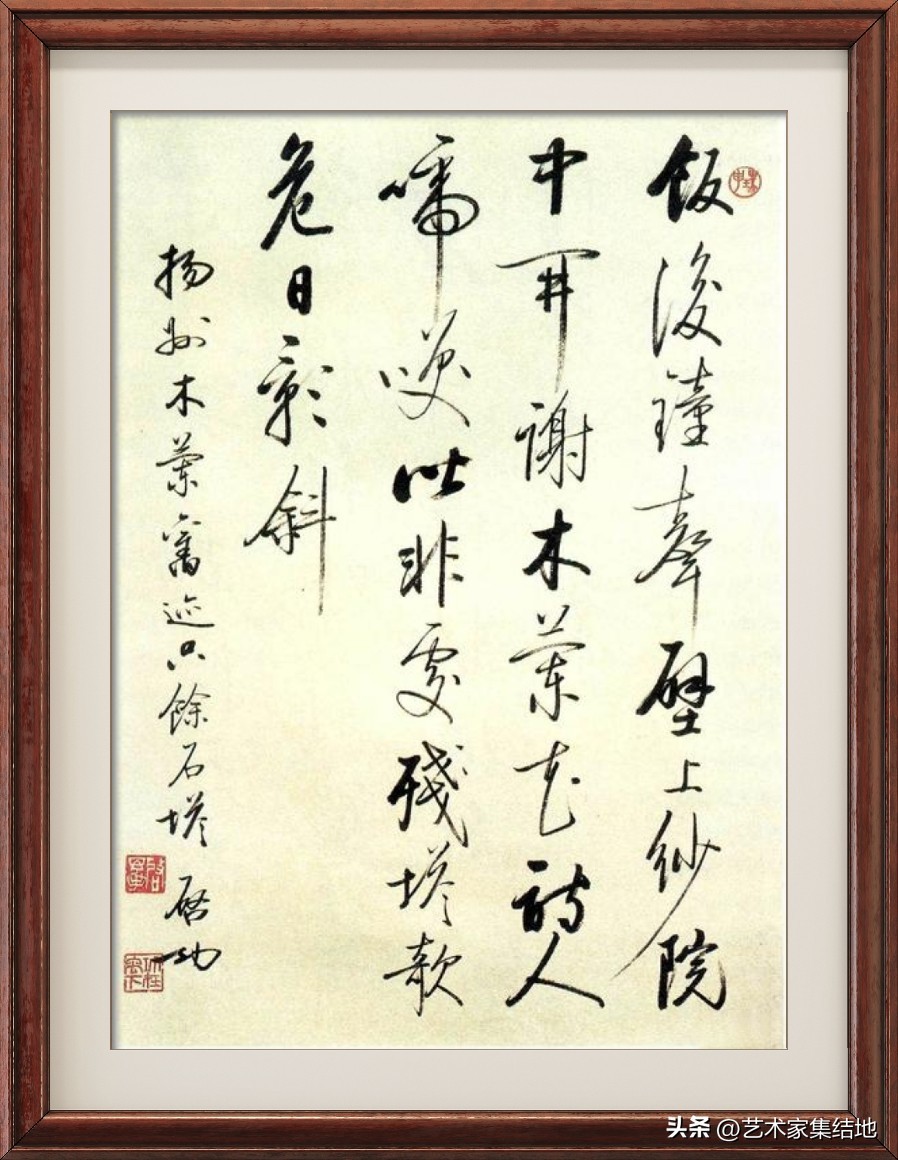 飯後鐘聲壁上紗院
中開謝木蘭花詩人
啼咲皆非處殘塔欹
危日影斜
揚州木蘭舊迹只餘石塔 啓功
头条 @艺术家集结地